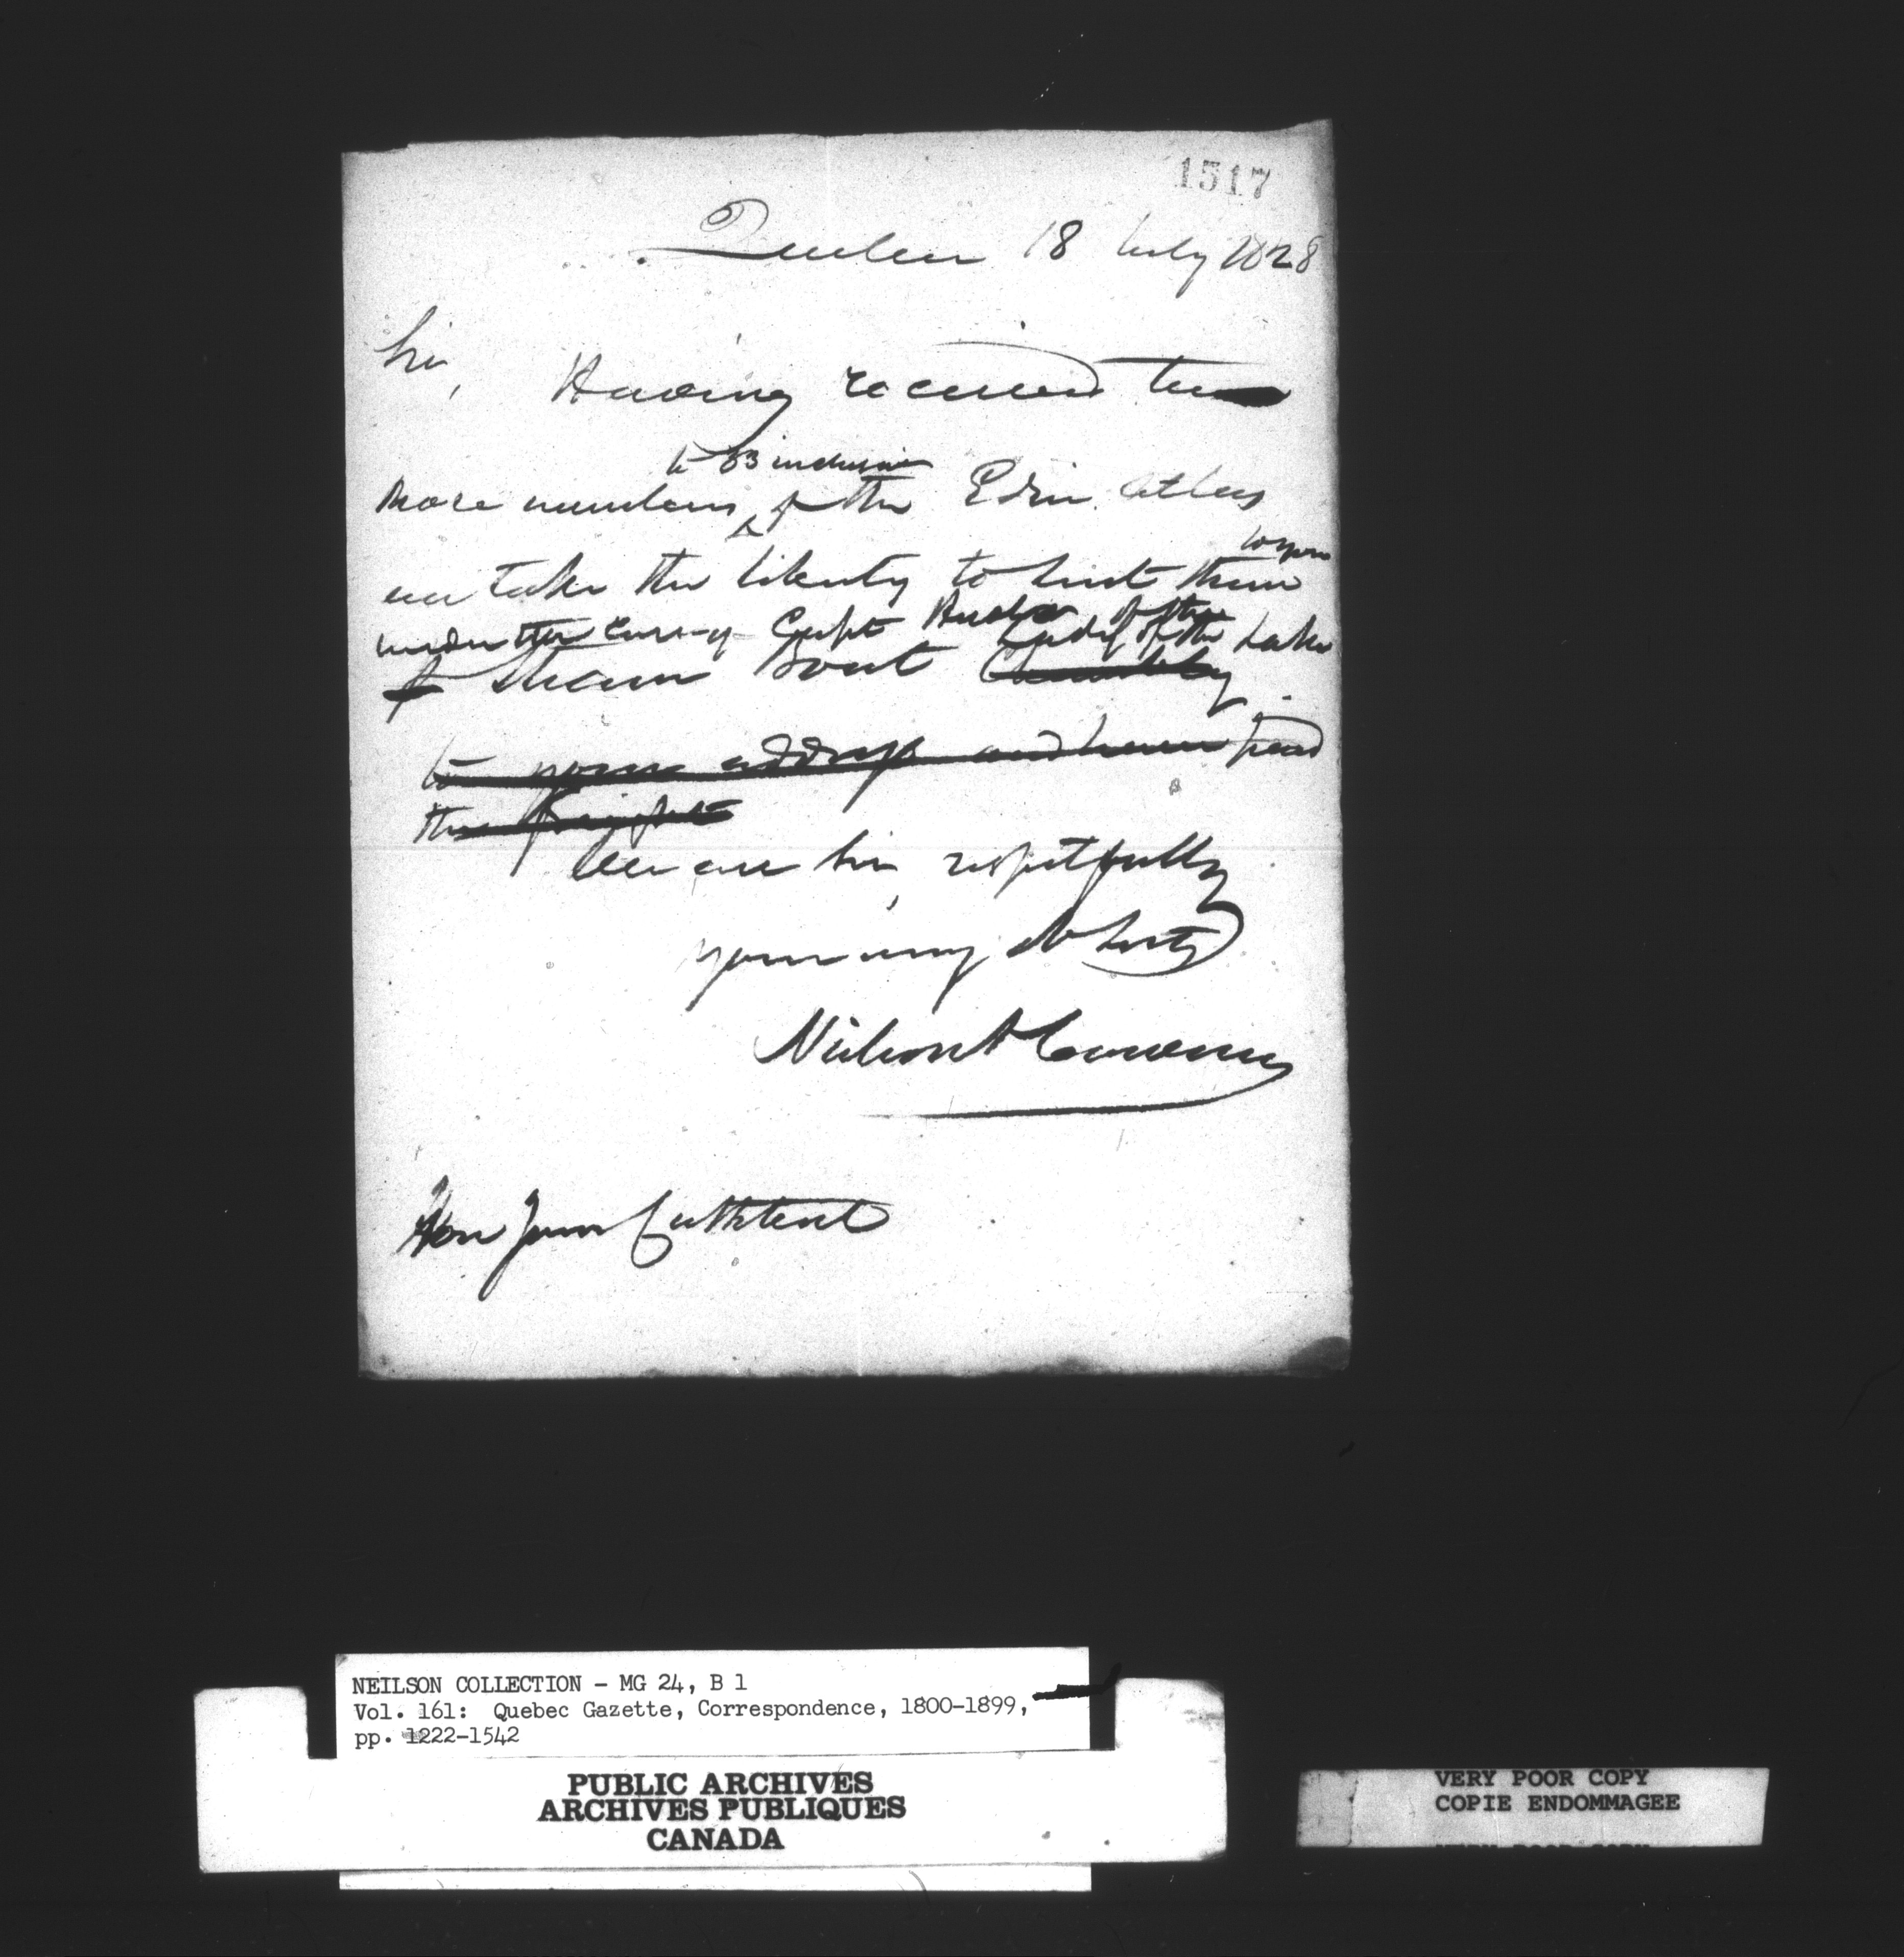 1517
Quebec 18 July 1828
Sir,
Having received two
more numbers to 33 inclusive of the Edin. Atlas
we take the liberty to send them to you
under the care of Capt of the
Lady of the Lake
of Steam Boat Chambly
to your address and have paid
the freight
We are Sir, respetfully
your very ob Serts
Neilson & Cowan
Hon James Cuthbert
NEILSON COLLECTION - MG 24, B 1
Vol. 161: Quebec Gazette, Correspondence, 1800-1899,
pp. 1222-1542
PUBLIC ARCHIVES
ARCHIVES PUBLIQUES
CANADA
VERY POOR COPY
COPIE ENDOMMAGEE